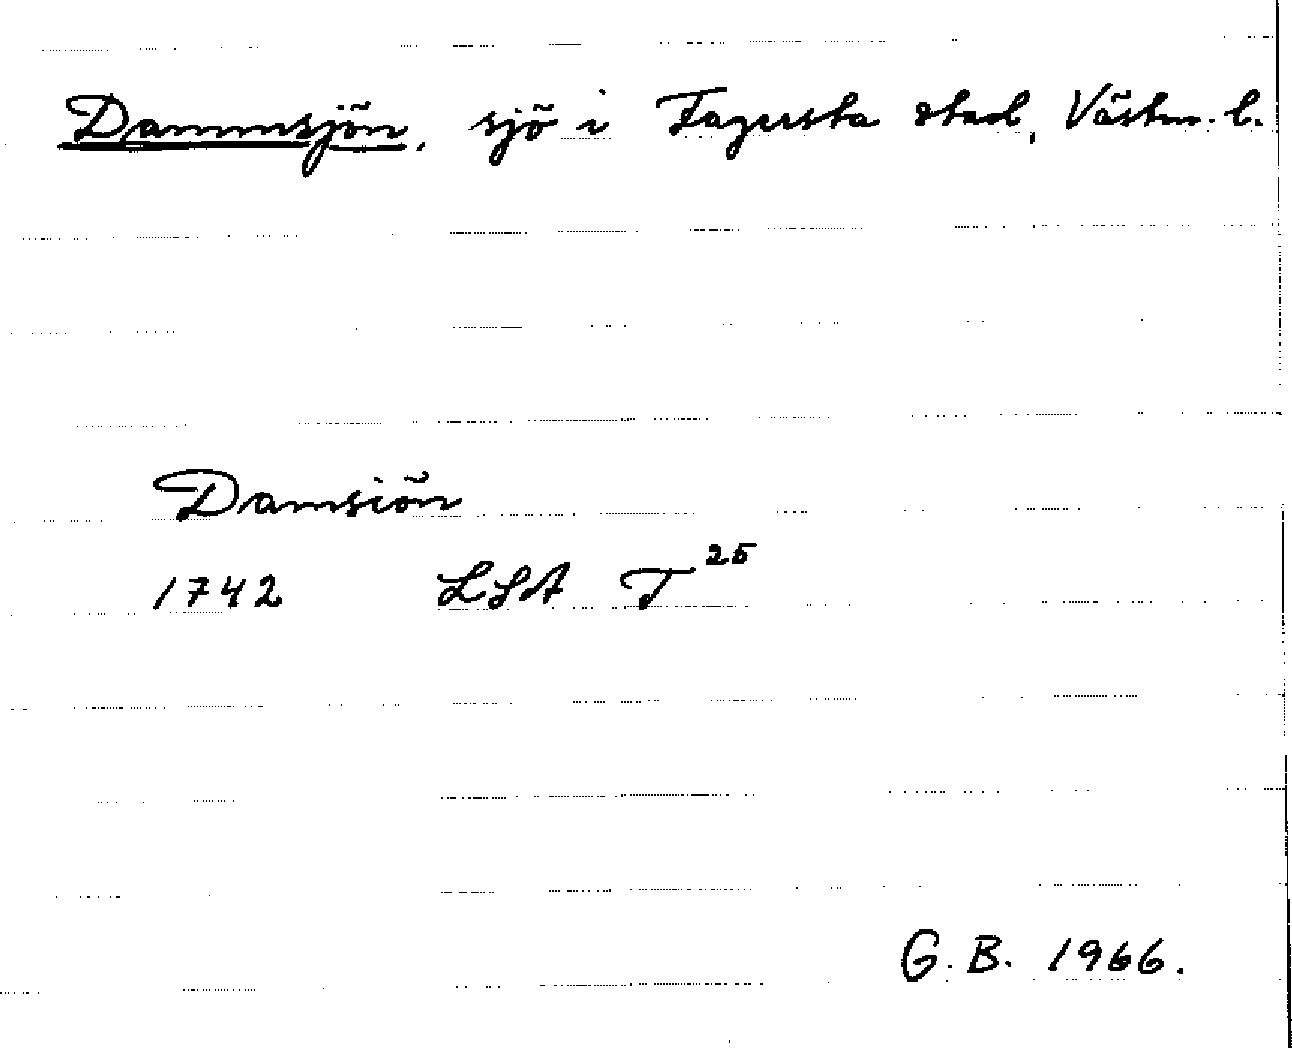 Dammsjön, sjö i Fagersta stad, Västm. l.
Damsiön
1742 LSA T 25
G. B. 1966.